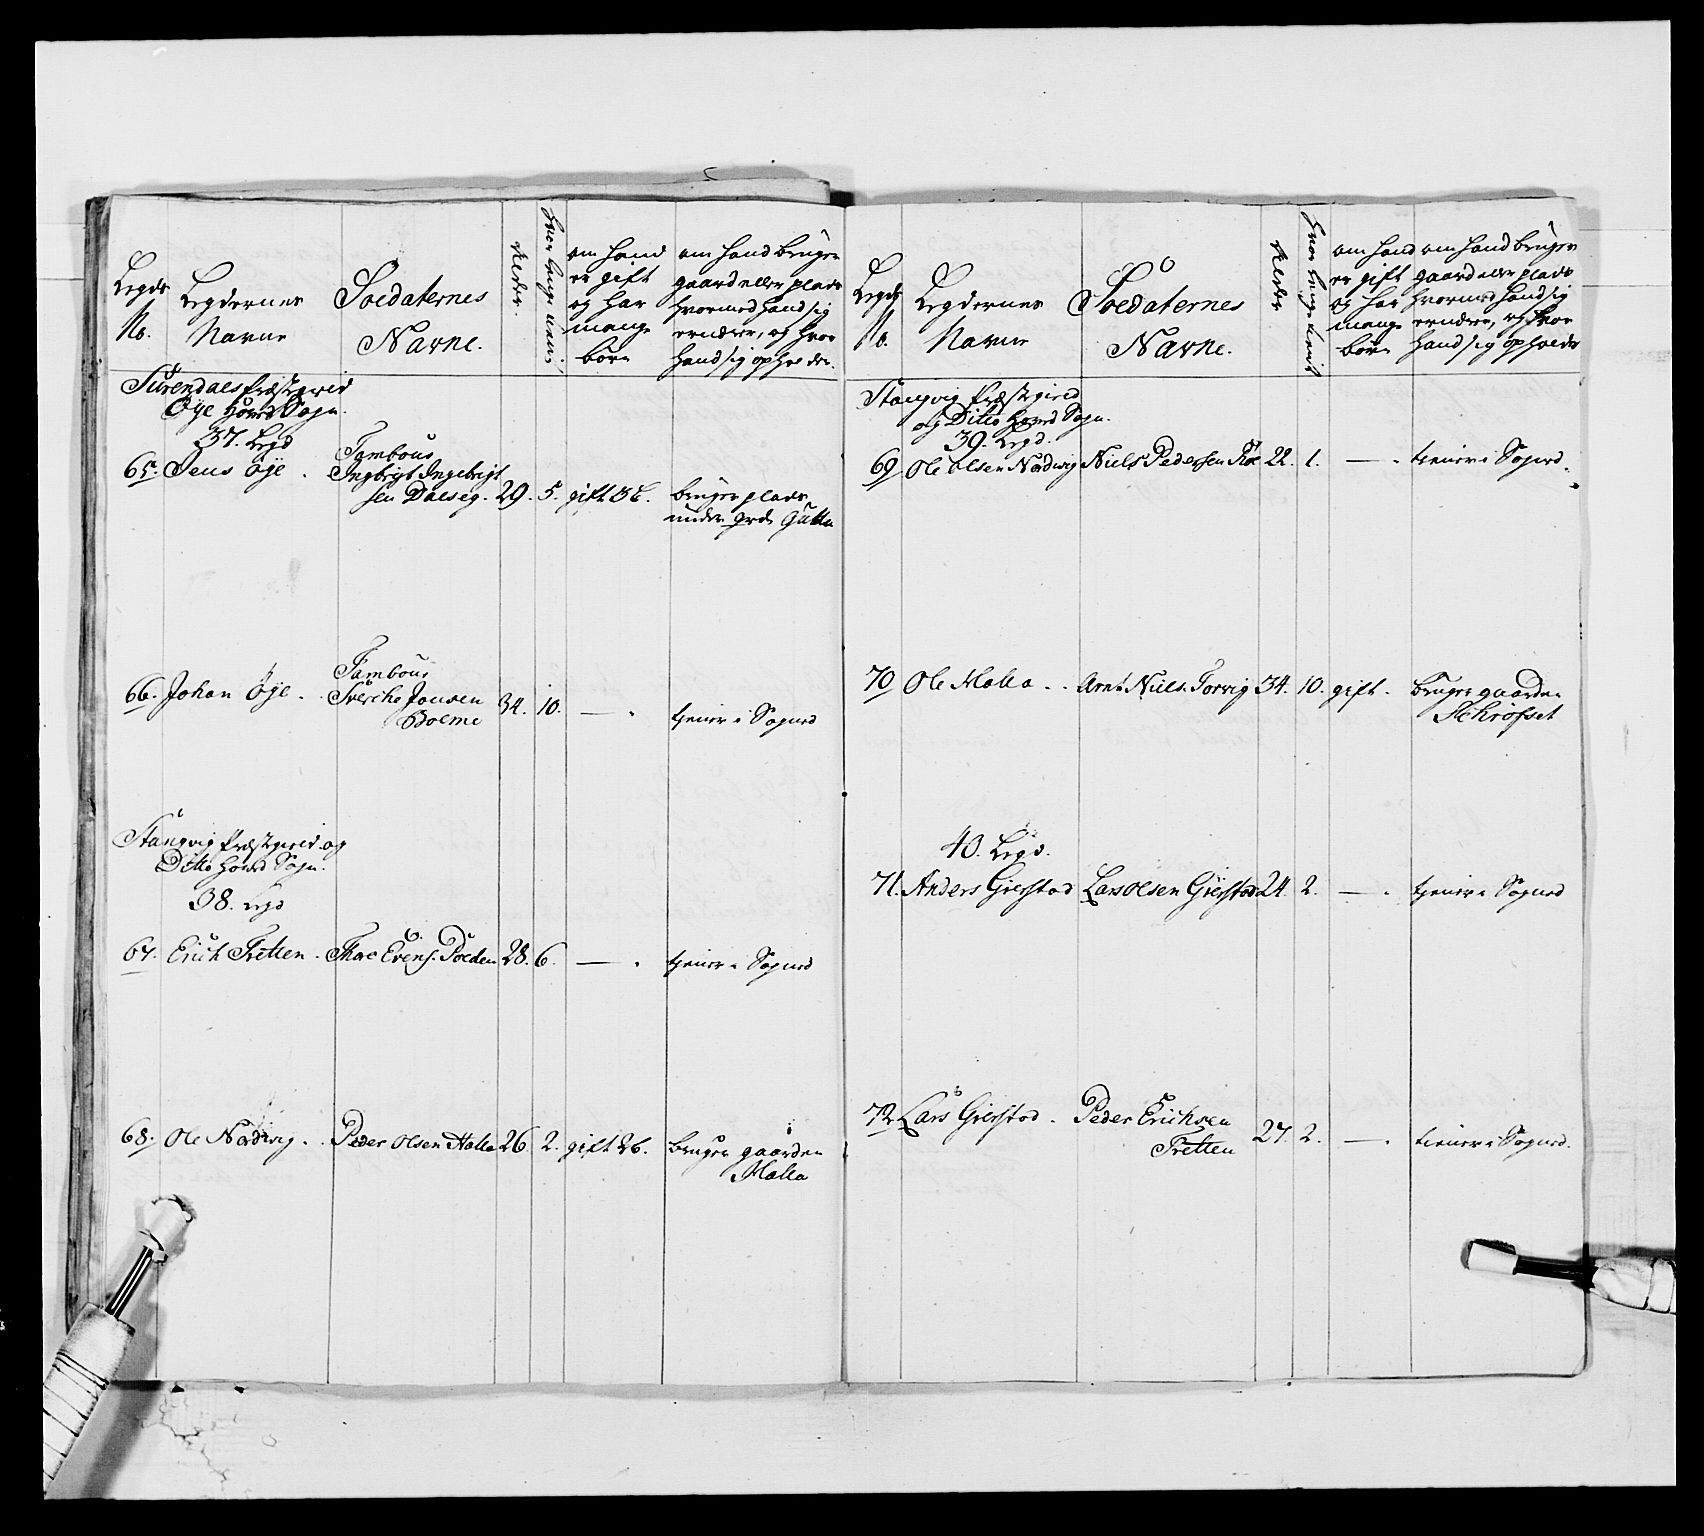 Legds
No.
Legdernes
Navne
Soldaternes
Navne.
Alder.
hvor lenge tient
om hand
er gift
og har
mange
börn
om hand bruger
gaard eller plads
hvormed hand sig
ernærer, og hvor
hand sig opholder.
Surendals Præstegield
Øye Hoved Sogn.
37. Legd
65. Jens Øye. Tambour
Ingbrigt Ingebrigt
sen Dalseg. 29. 5. gift 3 b. bruger plads
under grd.
66. Johan Øye. Tambour
Sverche Jonsen
Bolme 34. 10. — . tjener i Sogned
Stangvig Præstegield og
Ditto Hoved Sogn.
38. Legd
67. Erich Tretten. Thor Evens. Polden 28. 6. — . tjener i Sogned
68. Ole Nordvig. Peder Olsen Halle 26. 2. gift 2 b. bruger gaarden
Malla
Legds
No.
Legdernes
Navne
Soldaternes
Navne.
Alder
hvor lenge tient
om hand
er gift
og har
mange
börn
om hand bruger
gaard eller plads
hvormed hand sig
ernærer, og hvor
hand sig opholder
Stangvig Præstegield
og Ditto Hoved Sogn.
39. Legd.
69. Ole Olsen Nordvig Niels Pedersen 22. 1. — . tjener i Sogned.
70 Ole Malla. Arnt Niels. Torvig 34. 10. gift. bruger gaarden
Schrøfset
40. Legd.
71. Anders Gierstad Lars Olsen Gierstad 24. 2. — . tjener i Sogned
72. Lars Gierstad. Peder Erichsen
Tretten 27. 2. — . tiener i Sogned.